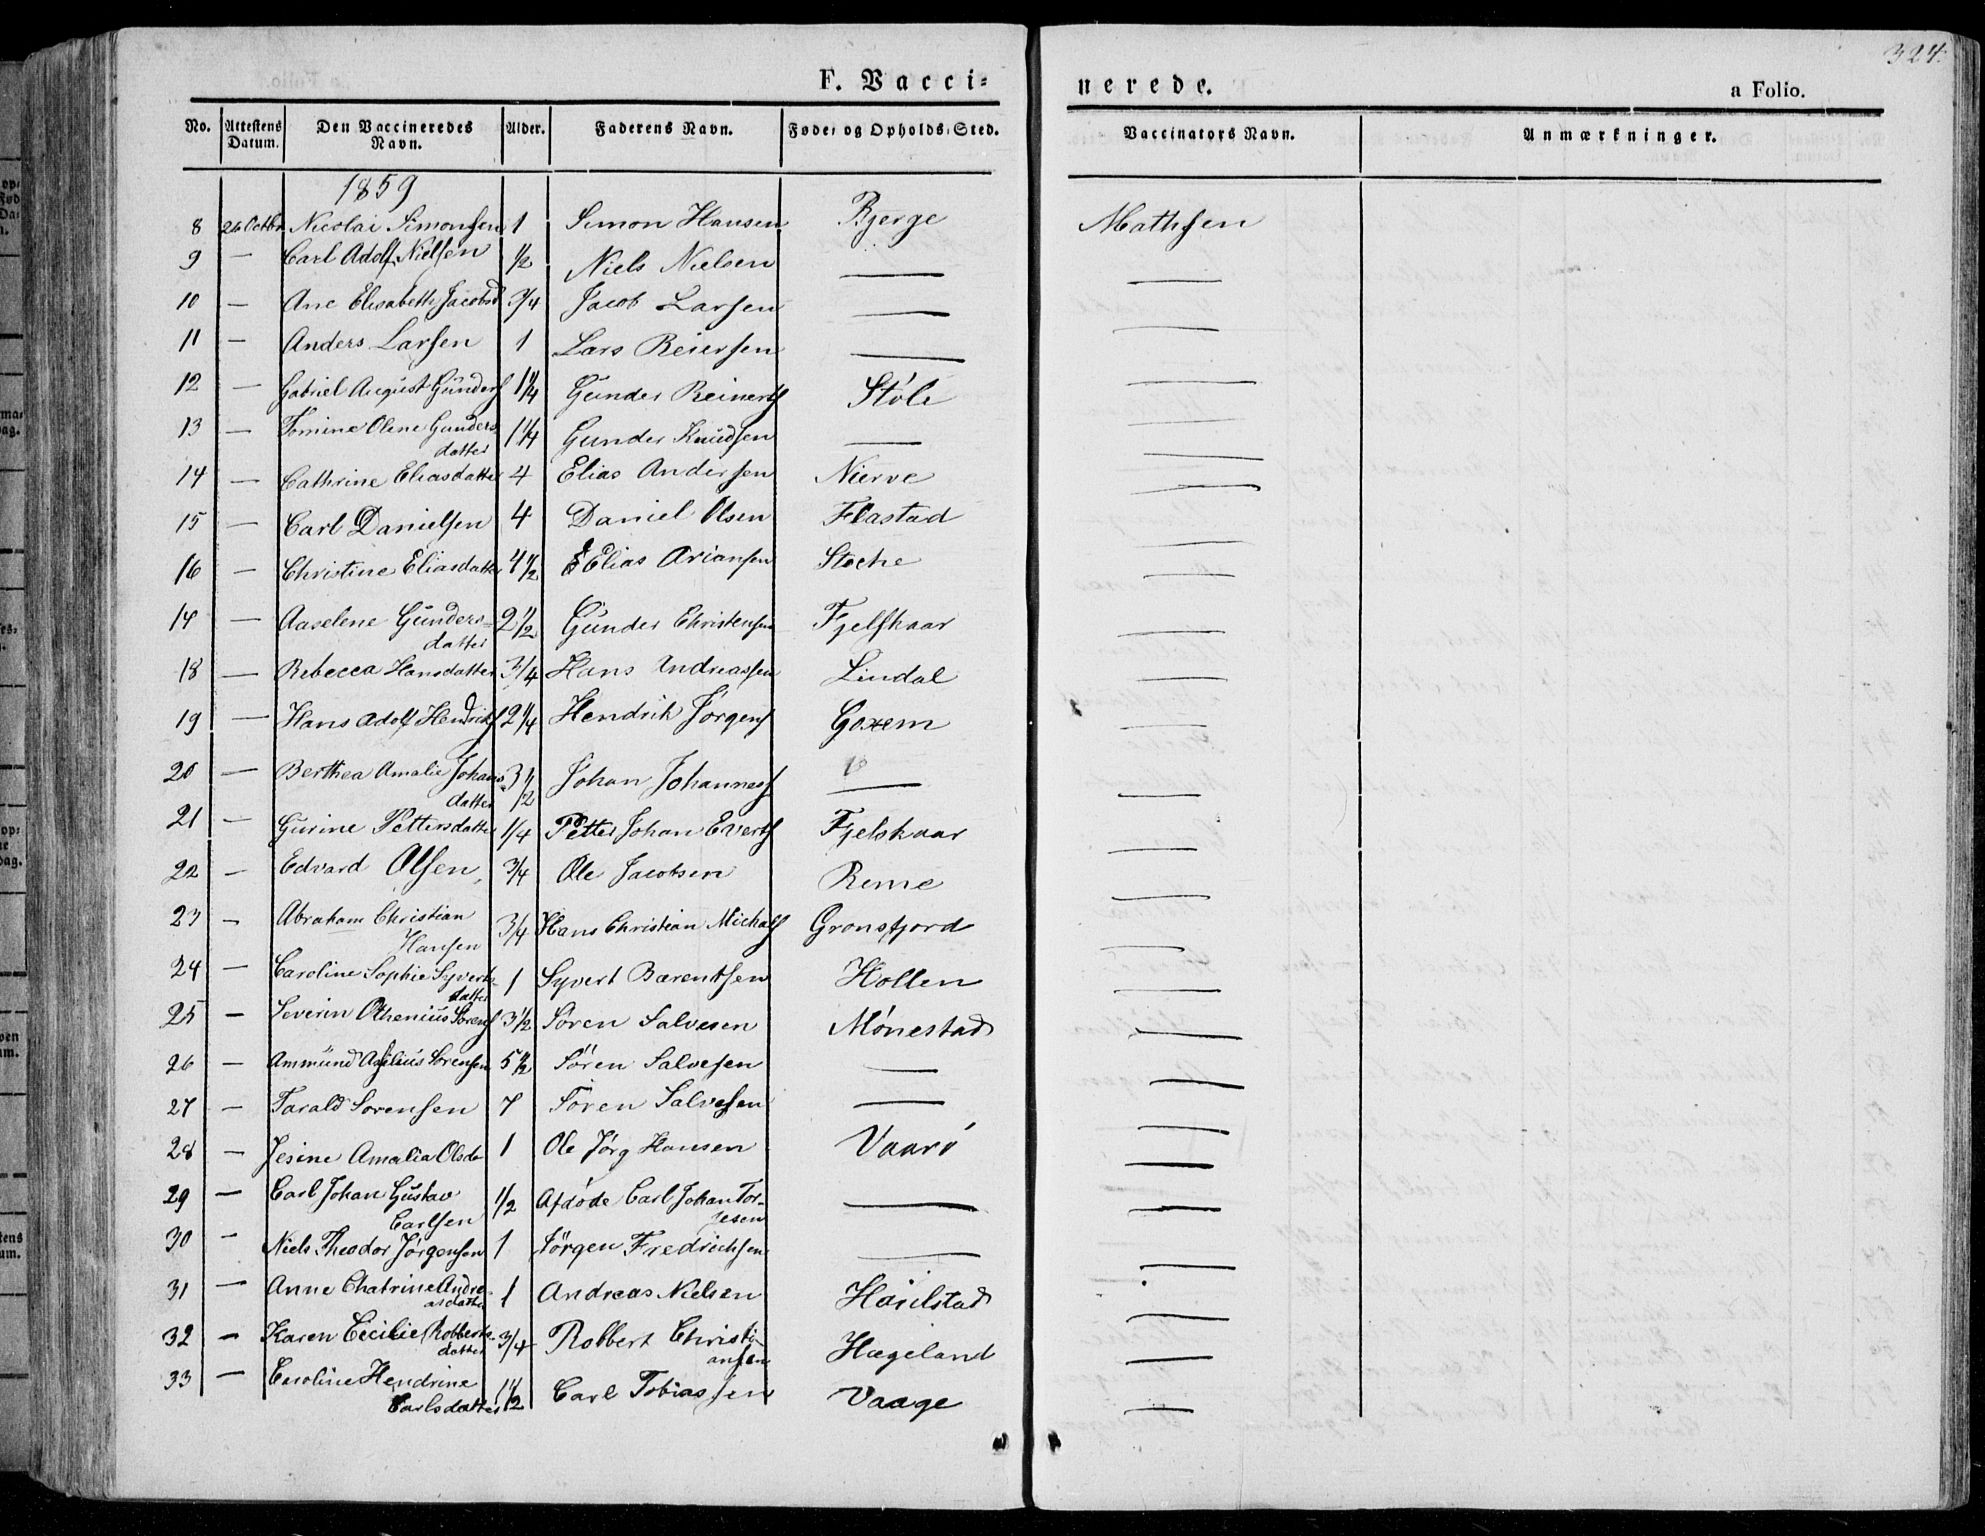 324.
F. Vacci-
nerede.
a Folio.
No. Attestens Datum. Den Vaccineredes Navn. Alder. Faderens Navn. Føde- og Opholds-Sted. Vaccinators Navn. Anmærkninger.
1859
8 26 Octbr Nicolai Simonsen 1 Simon Hansen Bjerge Mathsen
9 — Carl Adolf Nielsen 1/2 Niels Nielsen — —
10 — Ane Elisabeth Jacobsd 3/4 Jacob Larsen — —
11 — Anders Larsen 1 Lars Reiersen — —
12 — Gabriel August Gunders 1 1/4 Gunder Reinerts Støle —
13 — Tomine Olene Gunders
datter 1 1/4 Gunder Knudsen — —
14 — Cathrine Eliasdatter 4 Elias Andersen Nierve —
15 — Carl Danielsen 4 Daniel Olsen Flastad —
16 — Christine Eliasdatter 4 1/2 Elias Ariansen —
17 — Aaselene Gunders-
datter 2 1/2 Gunder Christensen Fjelskaar —
18 — Rebecca Hansdatter 3/4 Hans Andreassen Lindal —
19 — Hans Adolf Hendriks 2 1/4 Hendrik Jørgens Goxem —
20 — Berthea Amalie Johans
datter 3 1/2 Johan Johannes — —
21 — Gurine Pettersdatter 1/4 Petter Johan Everts Fjelskaar —
22 — Edvard Olsen 3/4 Ole Jacobsen Reme —
23 — Abraham Christian
Hansen 3/4 Hans Christian Michals Gronsfjord —
24 — Caroline Sophie Syverts-
datter 1 Syvert Bærentsen Hollen —
25 — Severin Othenius Sørens 3 1/2 Søren Salvesen Mønestad —
26 — Ammund Sørensen 5 1/2 Søren Salvesen — —
27 — Tarald Sørensen 7 Søren Salvesen — —
28 — Jesine Amalia Olsda 1 Ole Jørg Hansen Vaarø —
29 — Carl Johan Gustav
Carlsen 1/2 Afdøde Carl Johan Tor-
jesen — —
30 — Niels Theodor Jørgensen 1 Jörgen Fredrichsen — —
31 — Anne Chatrine Andre-
asdatter 1 Andreas Nielsen —
32 — Karen Cecilie Robberts-
datter 3/4 Robbert Christi-
ansen Hægeland —
33 — Caroline Hendrine
Carlsdatter 1 1/2 Carl Tobiassen Vaage —